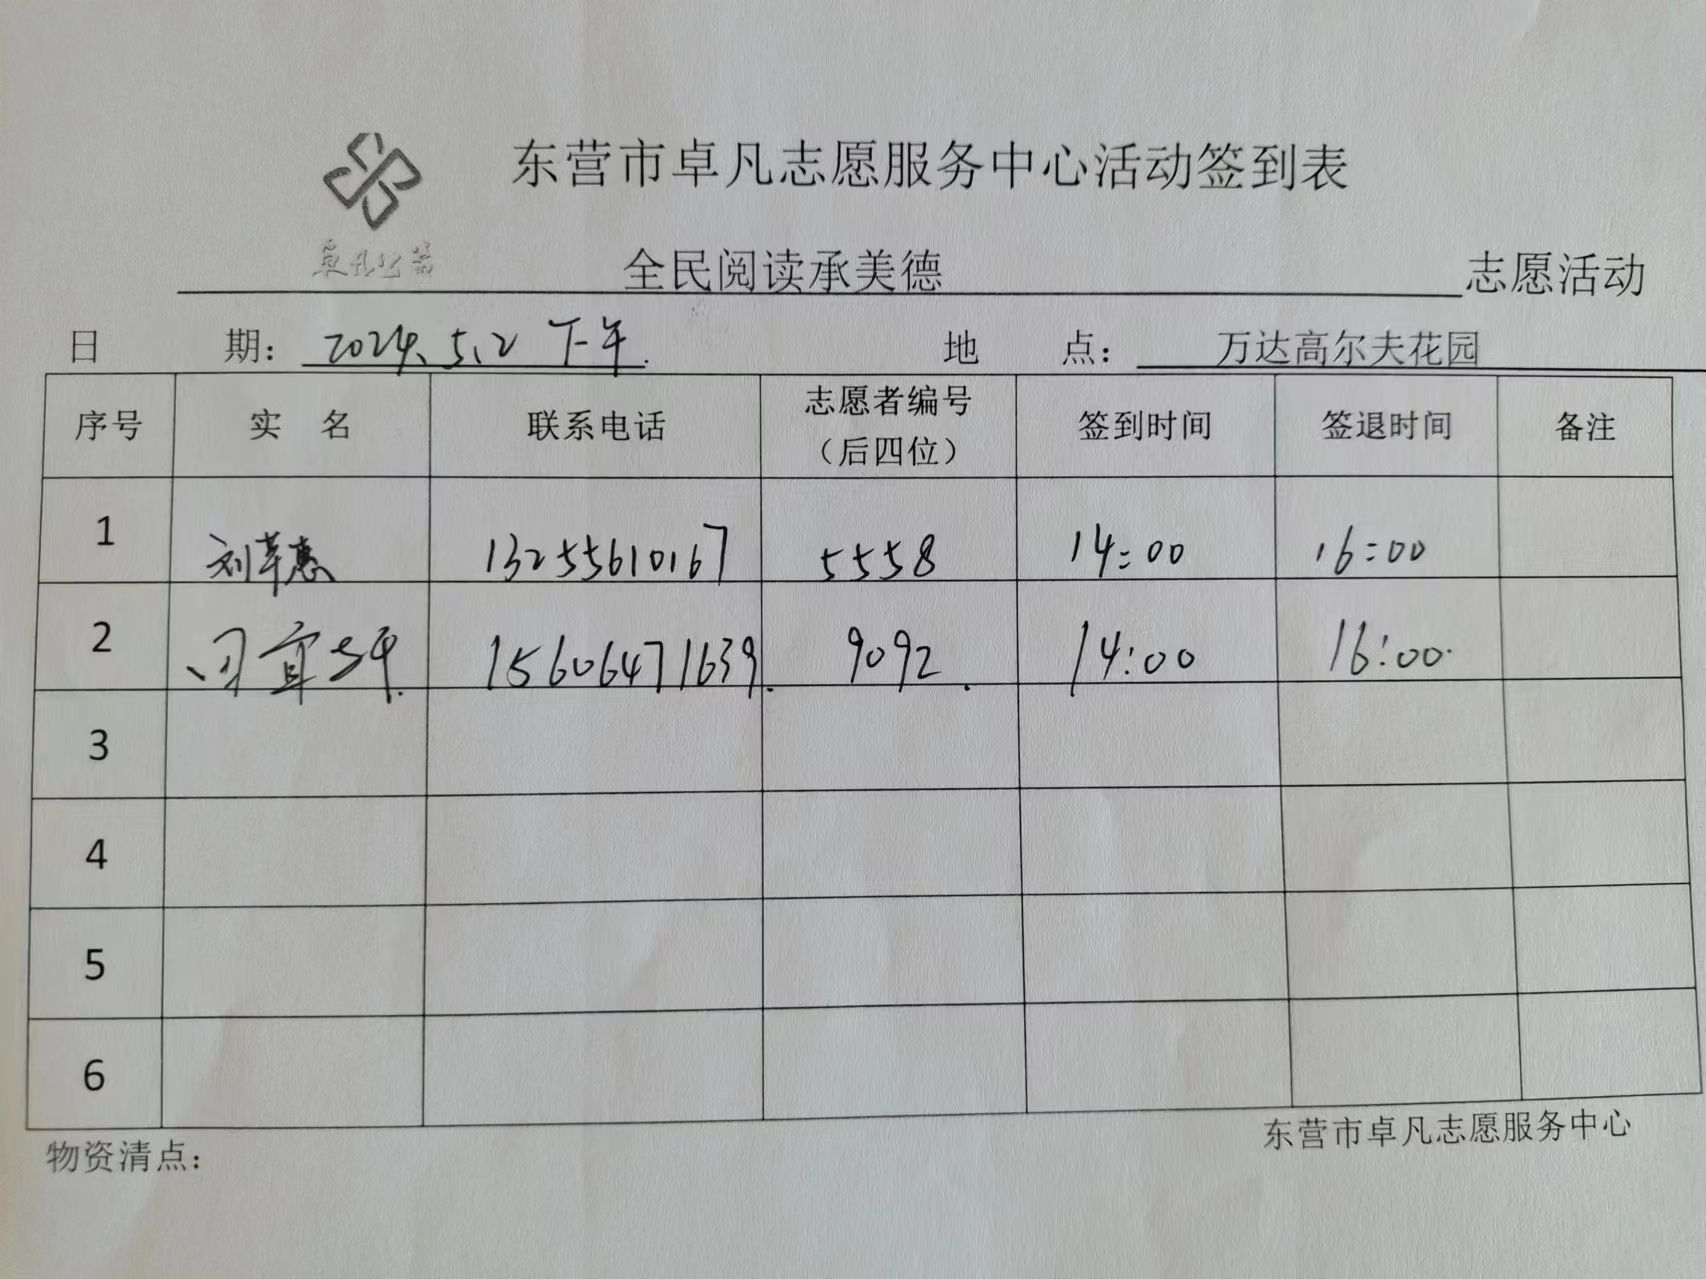 东营市卓凡志愿服务中心活动签到表
卓凡公益
全民阅读承美德 志愿活动
日 期： 2024.5.2 下午. 地 点： 万达高尔夫花园
序号 实 名 联系电话 志愿者编号（后四位） 签到时间 签退时间 备注
1 刘苹惠 13255610167 5558 14:00 16:00
2 15606471639. 9092. 14:00 16:00.
3
4
5
6
东营市卓凡志愿服务中心
物资清点：